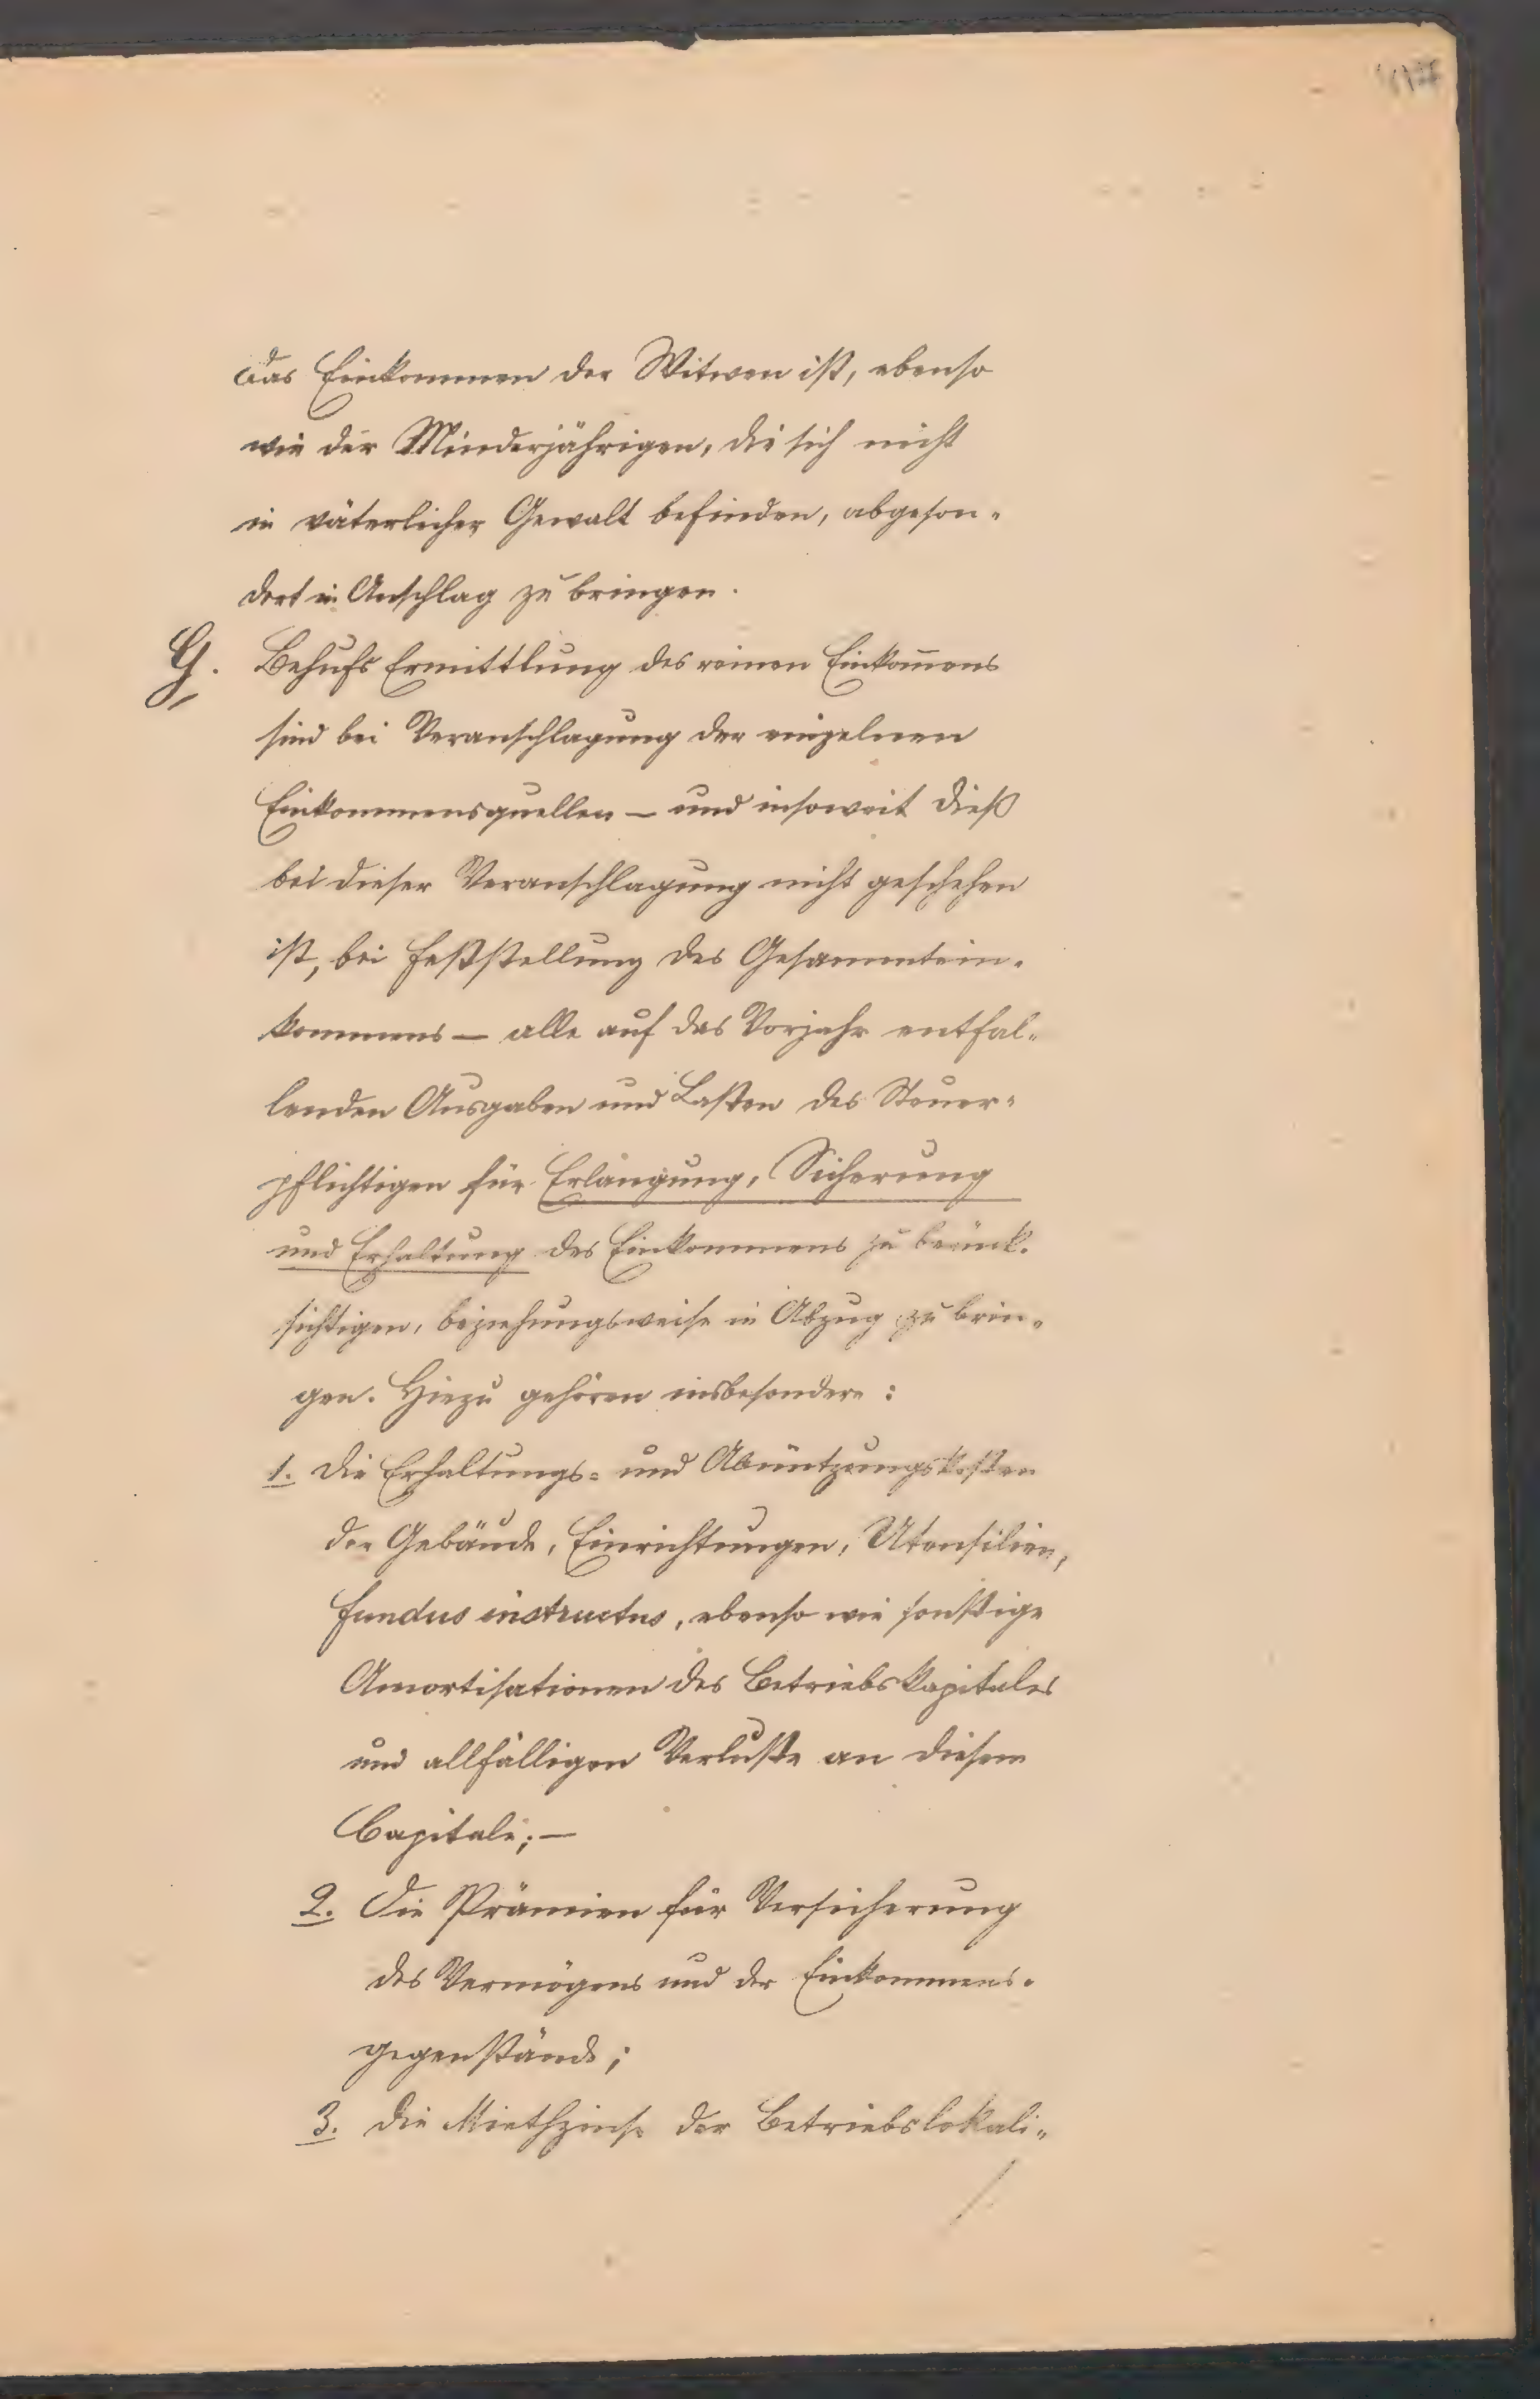 das Einkommen der Witwen ist, ebenso
wie der Minderjährigen, die sich nicht
in väterlicher Gewalt befinden, abgeson-
dert in Anschlag zu bringen.
G. Behufs Ermittlung des reinen Einkom̅ens
sind bei Veranschlagung der einzelnen
Einkommensquellen — und insoweit dieß
bei dieser Veranschlagung nicht geschehen
ist, bei Feststellung des Gesammtein-
kommens — alle auf das Vorjahr entfal-
lenden Ausgaben und Lasten des Steuer-
pflichtigen für Erlangung, Sicherung
und Erhaltung des Einkommens zu berück-
sichtigen, beziehungsweise in Abzug zu brin-
gen. Hiezu gehören insbesondere:
1. die Erhaltungs- und Abnützungskosten
der Gebäude, Einrichtungen, Utensilien,
fundus instructus, ebenso wie sonstige
Amortisationen des Betriebskapitales
und allfälligen Verluste an diesem
Capitale; —
2. die Prämien für Versicherung
des Vermögens und der Einkommens-
gegenstände;
3. die Miethzinse der Betriebslokali-